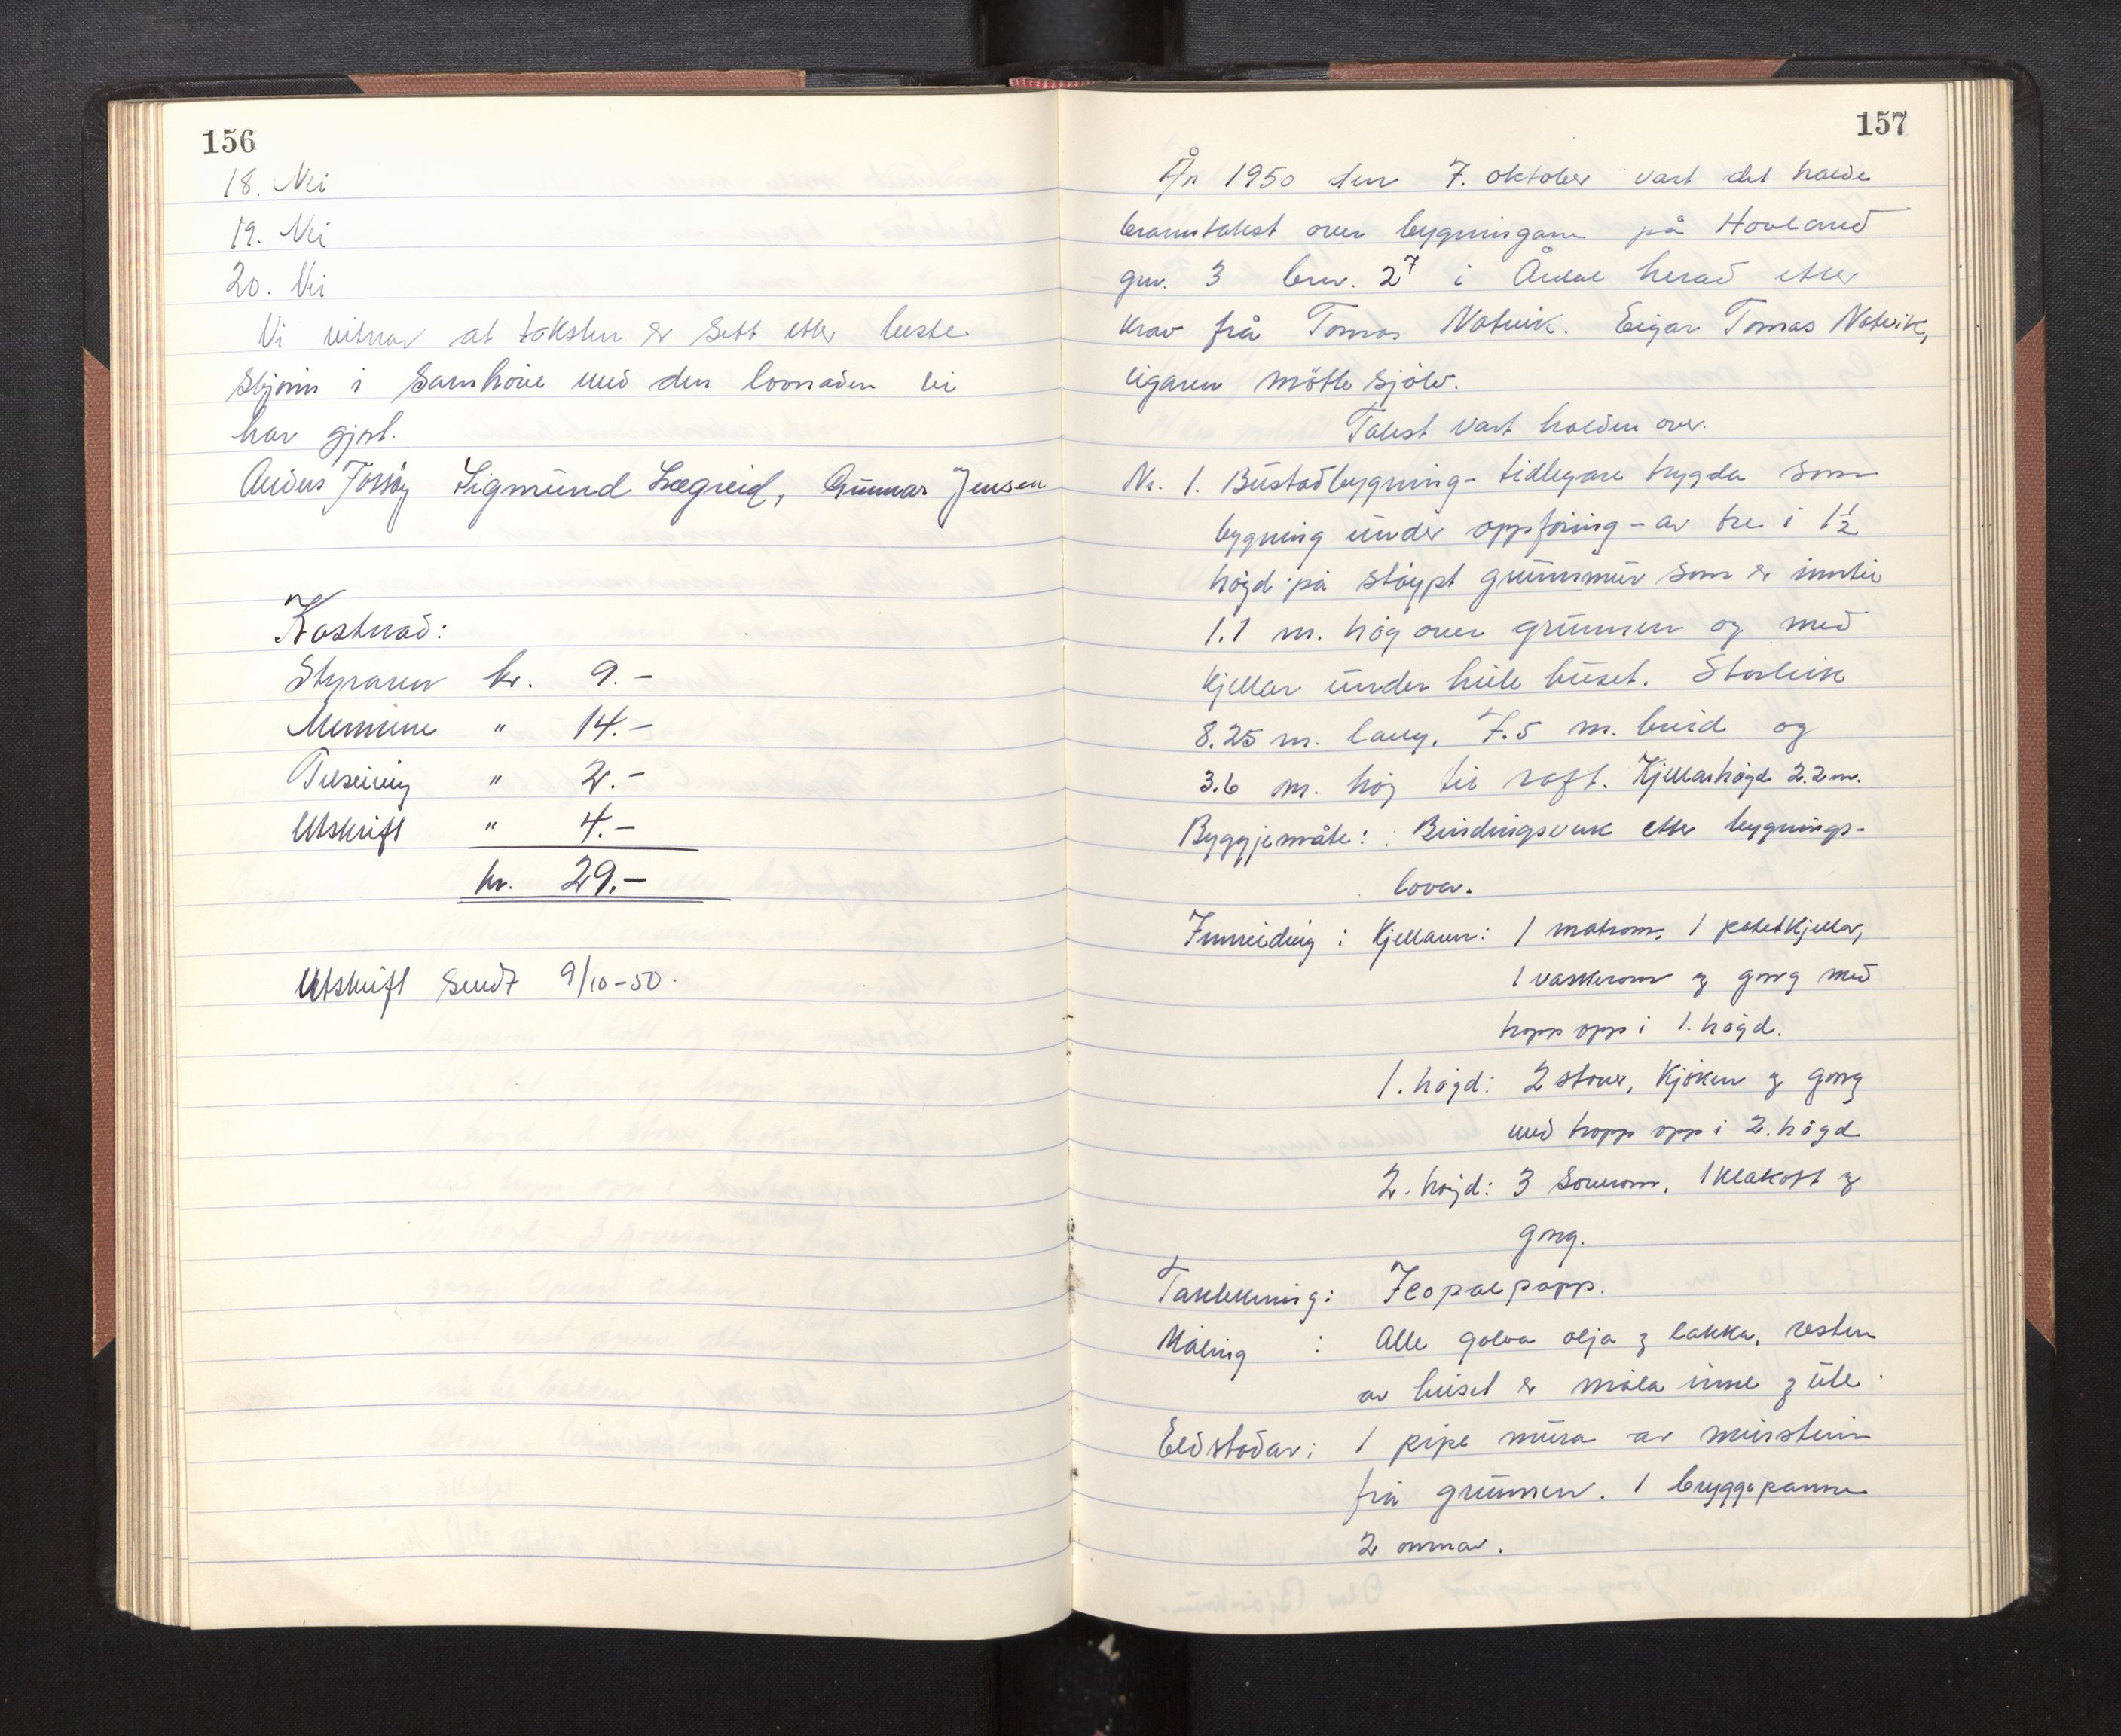 156
18. Nei
19. Nei
20. Nei
Vi vitnar at taksten er sett etter beste
skjøn i samhøve med den lovnaden vi
har gjort.
Sigmund Lægreid, Gunnar Jensen
Kostnad:
Styraren kr. 9.-
Mennene " 14.-
Tilseiing " 2.-
Utskrift " 4.-
kr. 29.-
Utskrift sendt 9/10-50.
157
År 1950 den 7. oktober vart det halde
branntakst over bygningane på Hovland
gnr. 3 bnr. 27 i Årdal herad etter
krav frå Tomas Natvik. Eigar Tomas Natvik,
eigaren møtte sjølv.
Takst vart halden over.
Nr. 1. Bustadbygning - tidlegare trygda som
bygning under oppføring - av tre i 1½
høgd på støypt grunnmur som er inntil
1.1 m. høg over grunnen og med
kjellar under heile huset. Storleik
8.25 m. lang, 7.5 m. breid og
3.6 m. høg til raft. Kjellarhøgd 2.2 m.
Byggjemåte: Bindingsverk etter bygnings-
lover.
Innreiding: Kjellaren: 1 matrom, 1 potetkjellar,
1 vaskerom og gang med
tropp opp i 1. høgd.
1. høgd: 2 stover, kjøken og gang
med tropp opp i 2. høgd
2. høgd: 3 soverom, 1 klekott og
gang.
Taktekking: Icopalpapp.
Måling : Alle golva olja og lakka, resten
av huset er måla inne og ute.
Eldstadar: 1 pipe mura av murstein
frå grunnen. 1 bryggepanne
2 omnar.